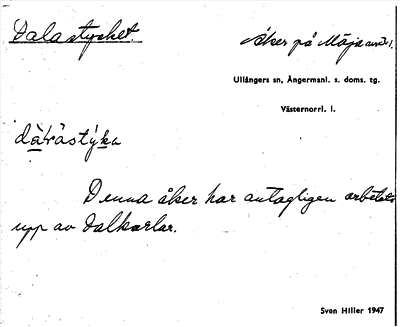 Dalastycket.
Åker på Mäja
Ullångers sn, Ångermanl. s. doms. tg.
Västernorrl. l.
Denna åker har antagligen arbetats
upp av dalkarlar.
Sven Hiller 1947